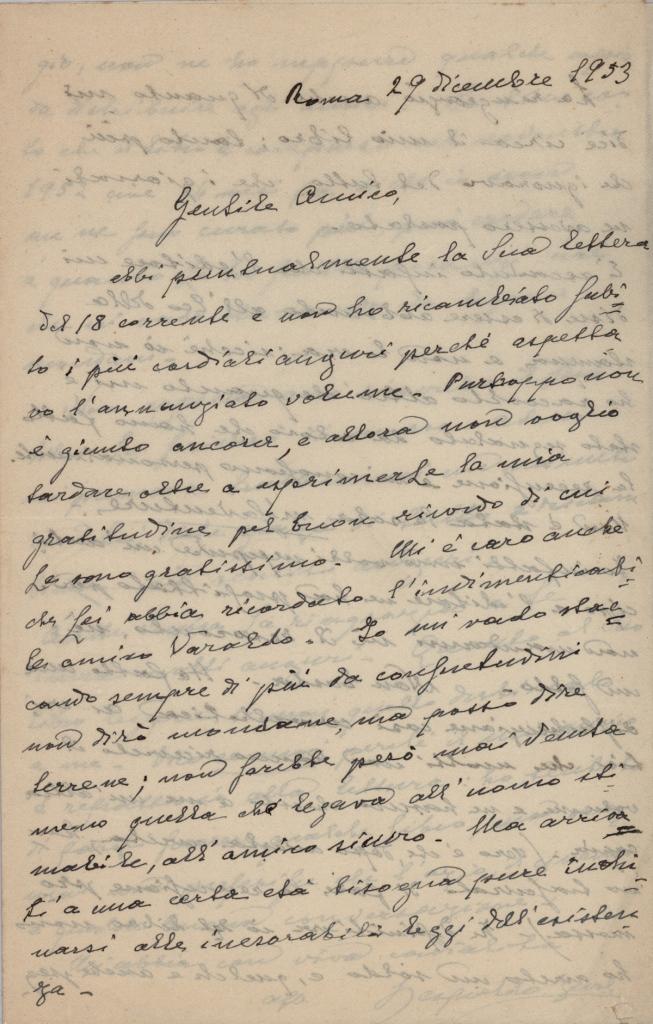 Roma 29 dicembre 1953
Gentile Amico,
ebbi puntualmente la Sua lettera
del 18 corrente e non ho ricambiato subi=
to i più cordiali auguri perché aspetta
vo l'annunziato volume. Purtroppo non
è giunto ancora, e allora non voglio
tardare oltre a esprimerLe la mia
gratitudine pel buon ricordo di cui
Le sono gratissimo. Mi è caro anche
che Lei abbia ricordato l'indimenticabi=
le amico Varaldo. Io mi vado stac=
cando sempre di più da consuetudini
non dirò mondane, ma posso dire
terrene; non sarebbe però mai venuta
meno quella che legava all'uomo sti
mabile, all'amico sicuro. Ma arriva
ti a una certa età bisogna pure inchi=
narsi alle inesorabili leggi dell'esisten
za.